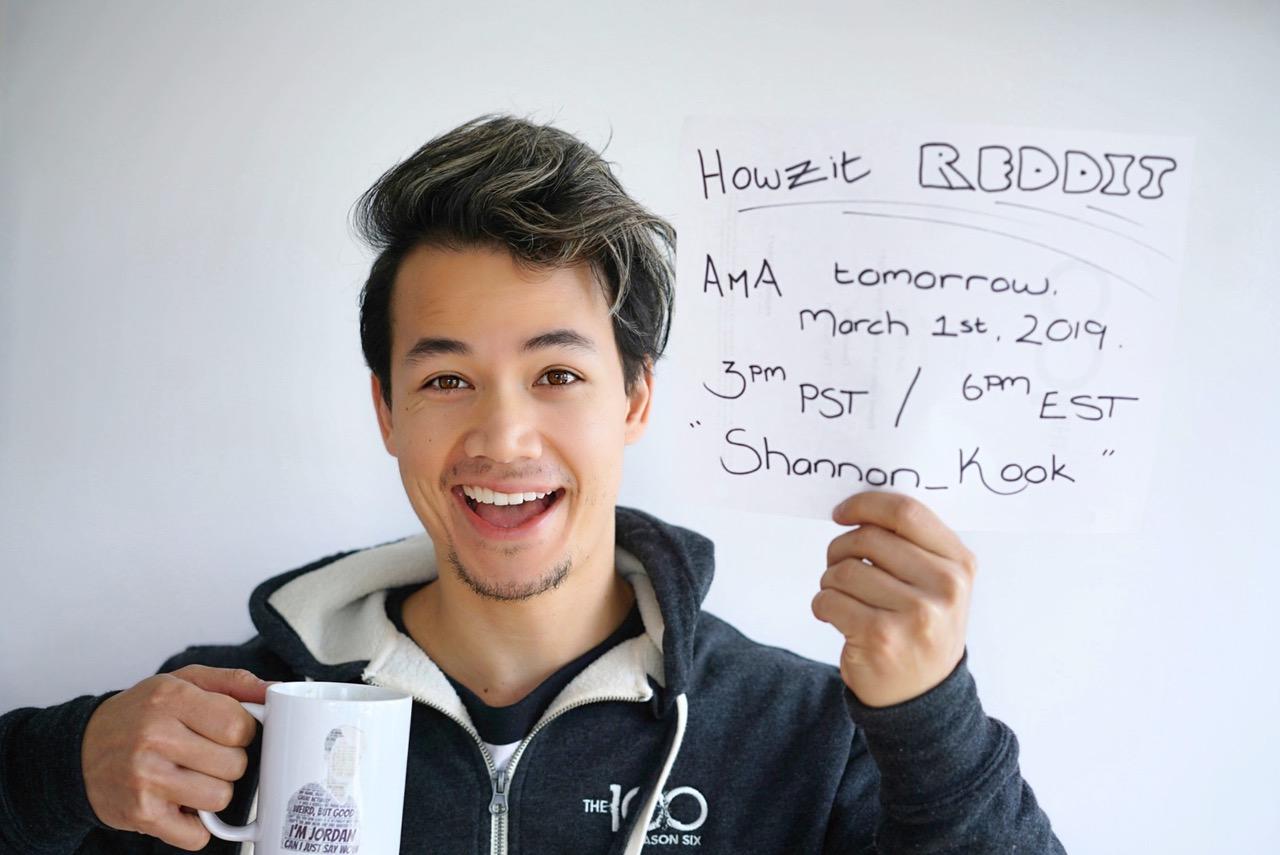 Howzit REDDIT
AMA tomorrow.
March 1st, 2019.
3pm PST / 6pm EST
"Shannon_Kook"
THE 100
ASON SIX
GREAT ACTOR
WEIRD, BUT GOOD
I'M JORDAN
CAN I JUST SAY WOW